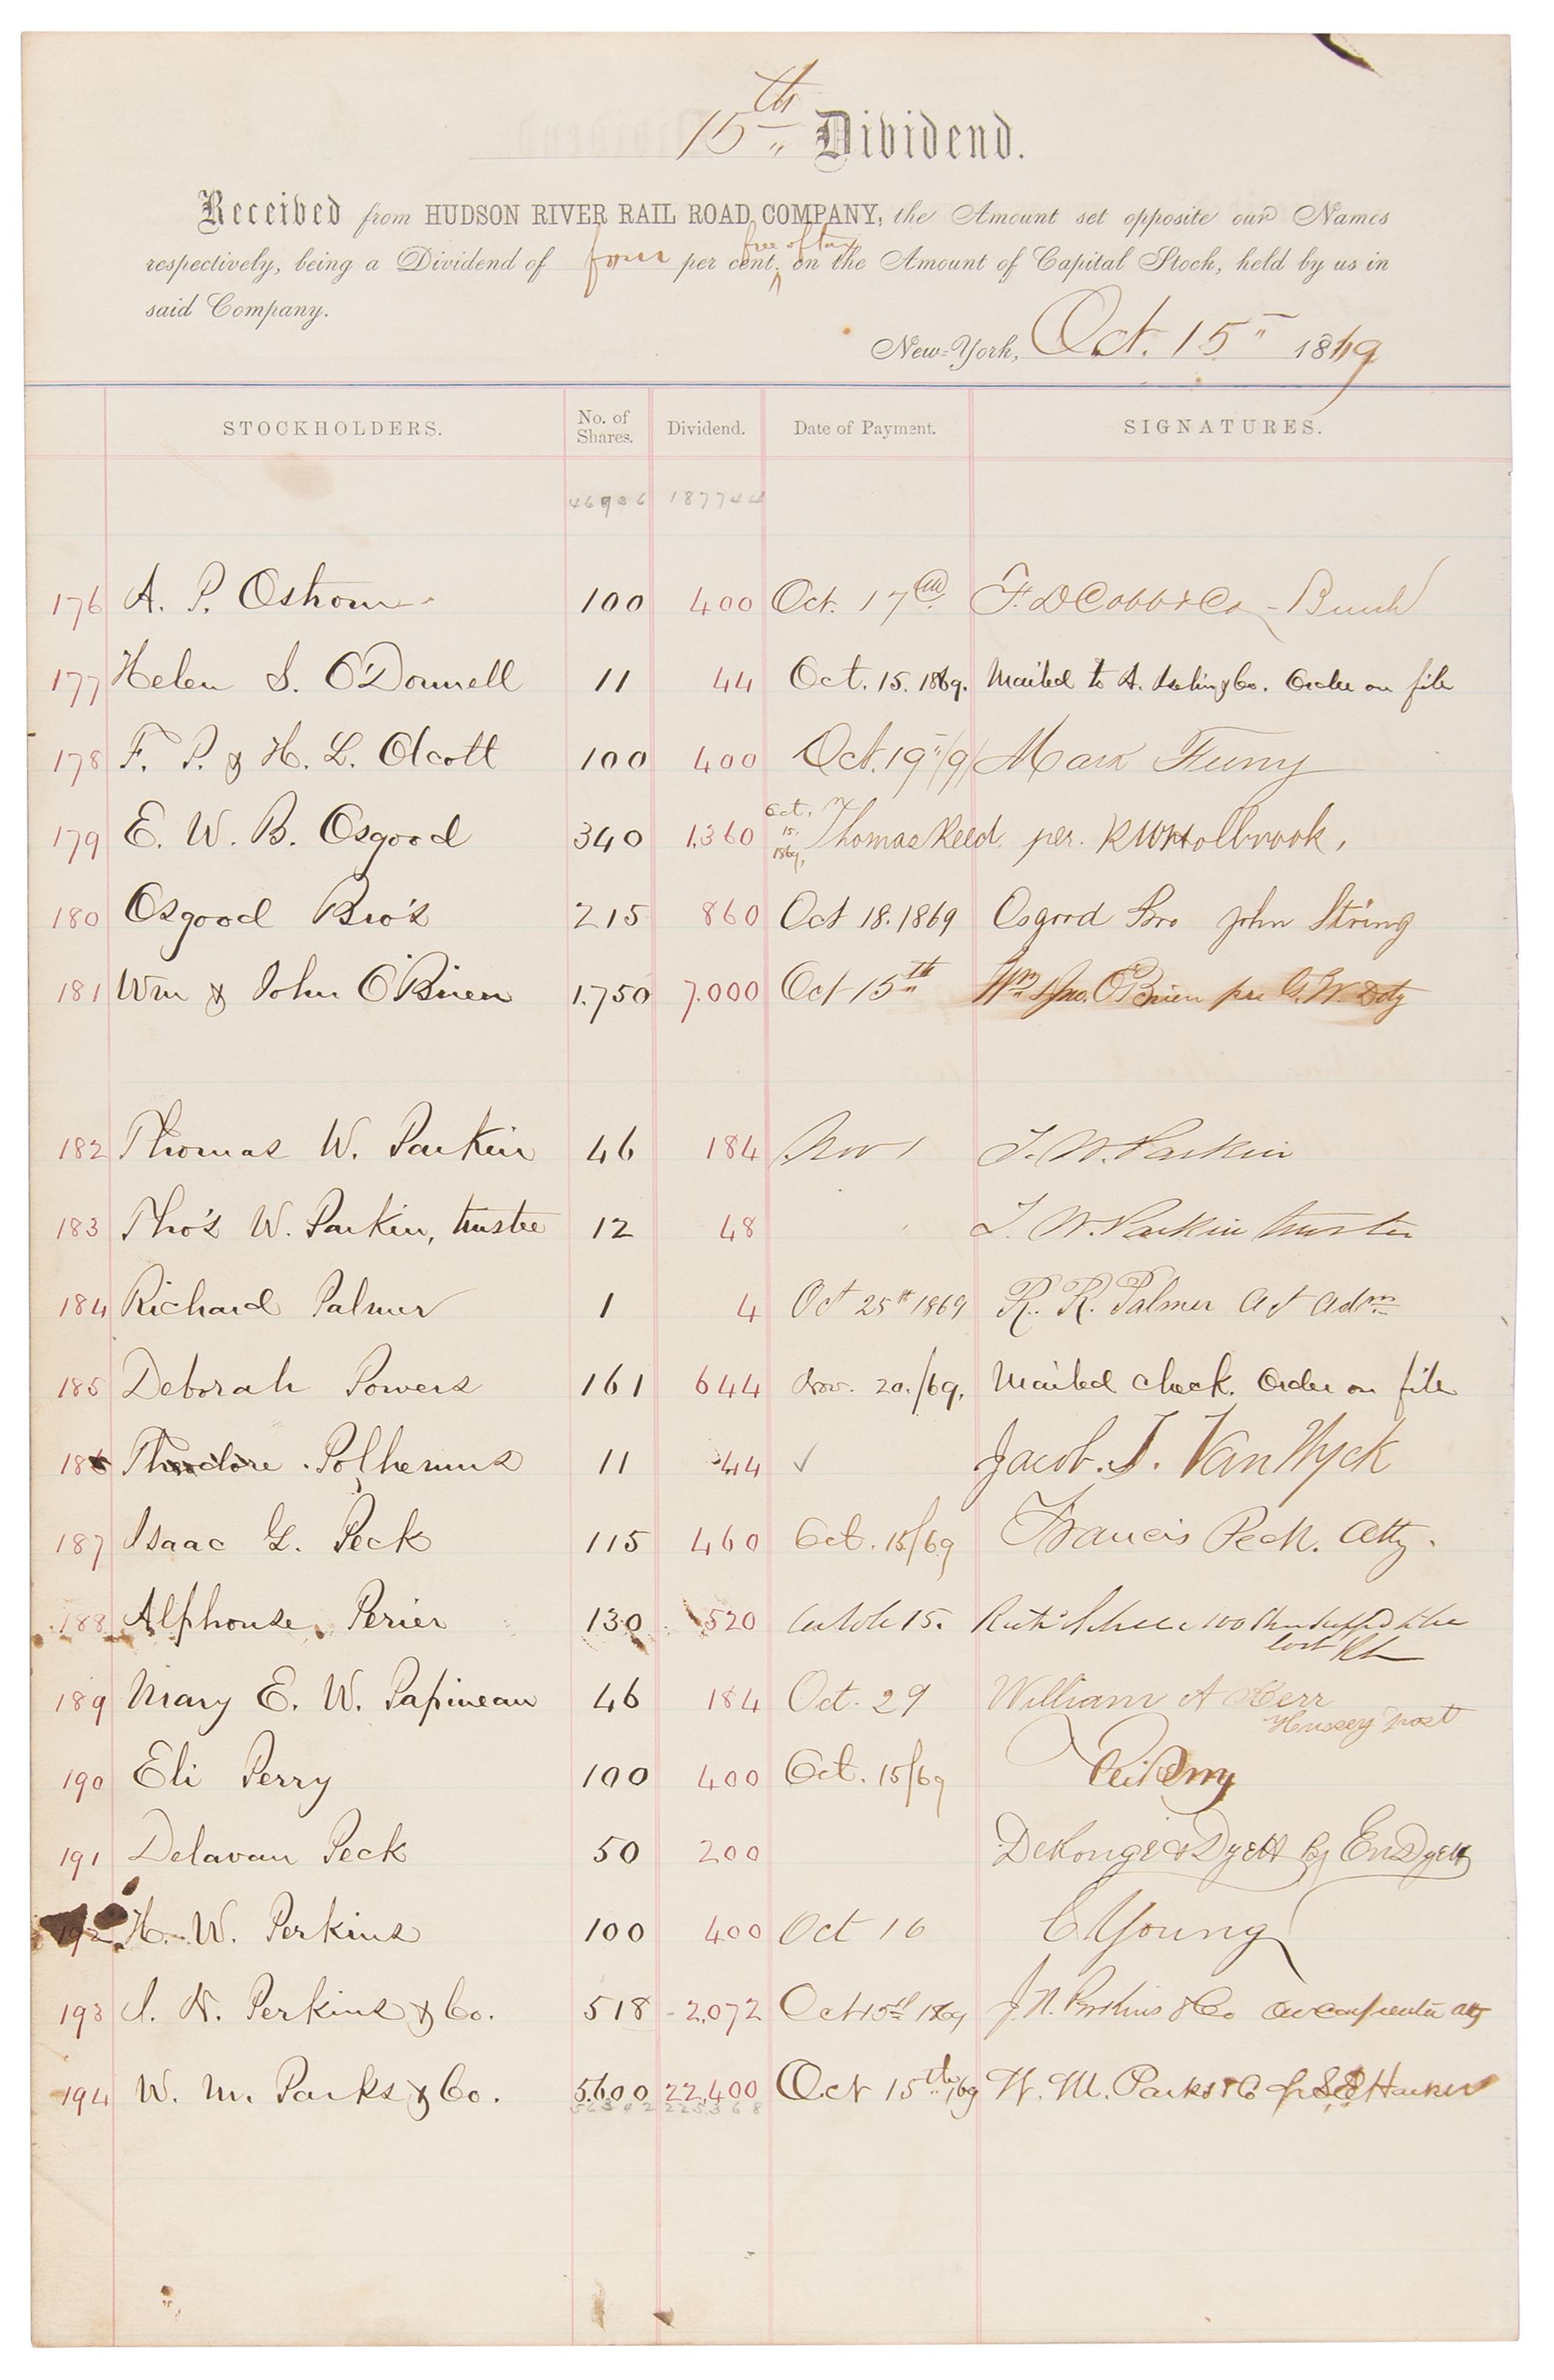 15th Dividend.
Received from HUDSON RIVER RAIL ROAD COMPANY, the Amount set opposite our Names
free of tax
respectively, being a Dividend of four per cent, on the Amount of Capital Stock, held by us in
said Company.
New-York, Oct. 15" 1869
STOCKHOLDERS. No. of Shares. Dividend. Date of Payment. SIGNATURES.
46906 187744
176 A. P. Ostrom 100 400 Oct. 17th F. D Cobb & Co
177 Helen S. O'Donnell 11 44 Oct. 15. 1869. Mailed to A. Iselin & Co. Order on file
178 F. P. & H. L. Olcott 100 400 Oct. 19"/69 Mark Furny
179 E. W. B. Osgood 340 1,360 Oct. 15. 1869, Thomas Reed per. R W Holbrook,
180 Osgood Bro's 215 860 Oct 18. 1869 Osgood Bro John String
181 Wm & John O'Brien 1,750 7,000 Oct 15th Wm & Jno. O'Brien per G. W. Doty
182 Thomas W. Parkin 46 184 Nov 1 T. W. Parkin
183 Tho's W. Parkin, trustee 12 48 T. W. Parkin trustee
184 Richard Palmer 1 4 Oct 25th 1869 R. R. Palmer Adm
185 Deborah Powers 161 644 Nov. 20./69. Mailed check. Order on file
186 Theodore Polhemus 11 44 ✓ Jacob. T. Van Wyck
187 Isaac G. Peck 115 460 Oct. 15/69 Francis Peck. Atty.
188 Alphonse Perier 130 520 15. 100
189 Mary E. W. Papineau 46 184 Oct. 29 William A Kerr
Hussey post
190 Eli Perry 100 400 Oct. 15/69 Eli Perry
191 Delavan Peck 50 200 DeKonge & Dyett by Dyett
192 H. W. Perkins 100 400 Oct 16 C Young
193 J. N. Perkins & Co. 518 2,072 Oct 15th 1869 J. N. Perkins & Co Carpenter atty
194 W. M. Parks & Co. 5,600 22,400 Oct 15th/69 W. M. Parks & Co Harker
56342 225368